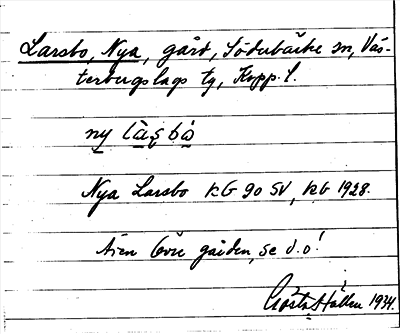 Larsbo, Nya, gård, Söderbärke sn, Väs-
terbergslags tg, Kopp. l.
ny là̱ʂbò̱
Nya Larsbo RG 90 SV, RG 1928.
Även Övre gården, se d.o!
Gösta Hallen 1934.